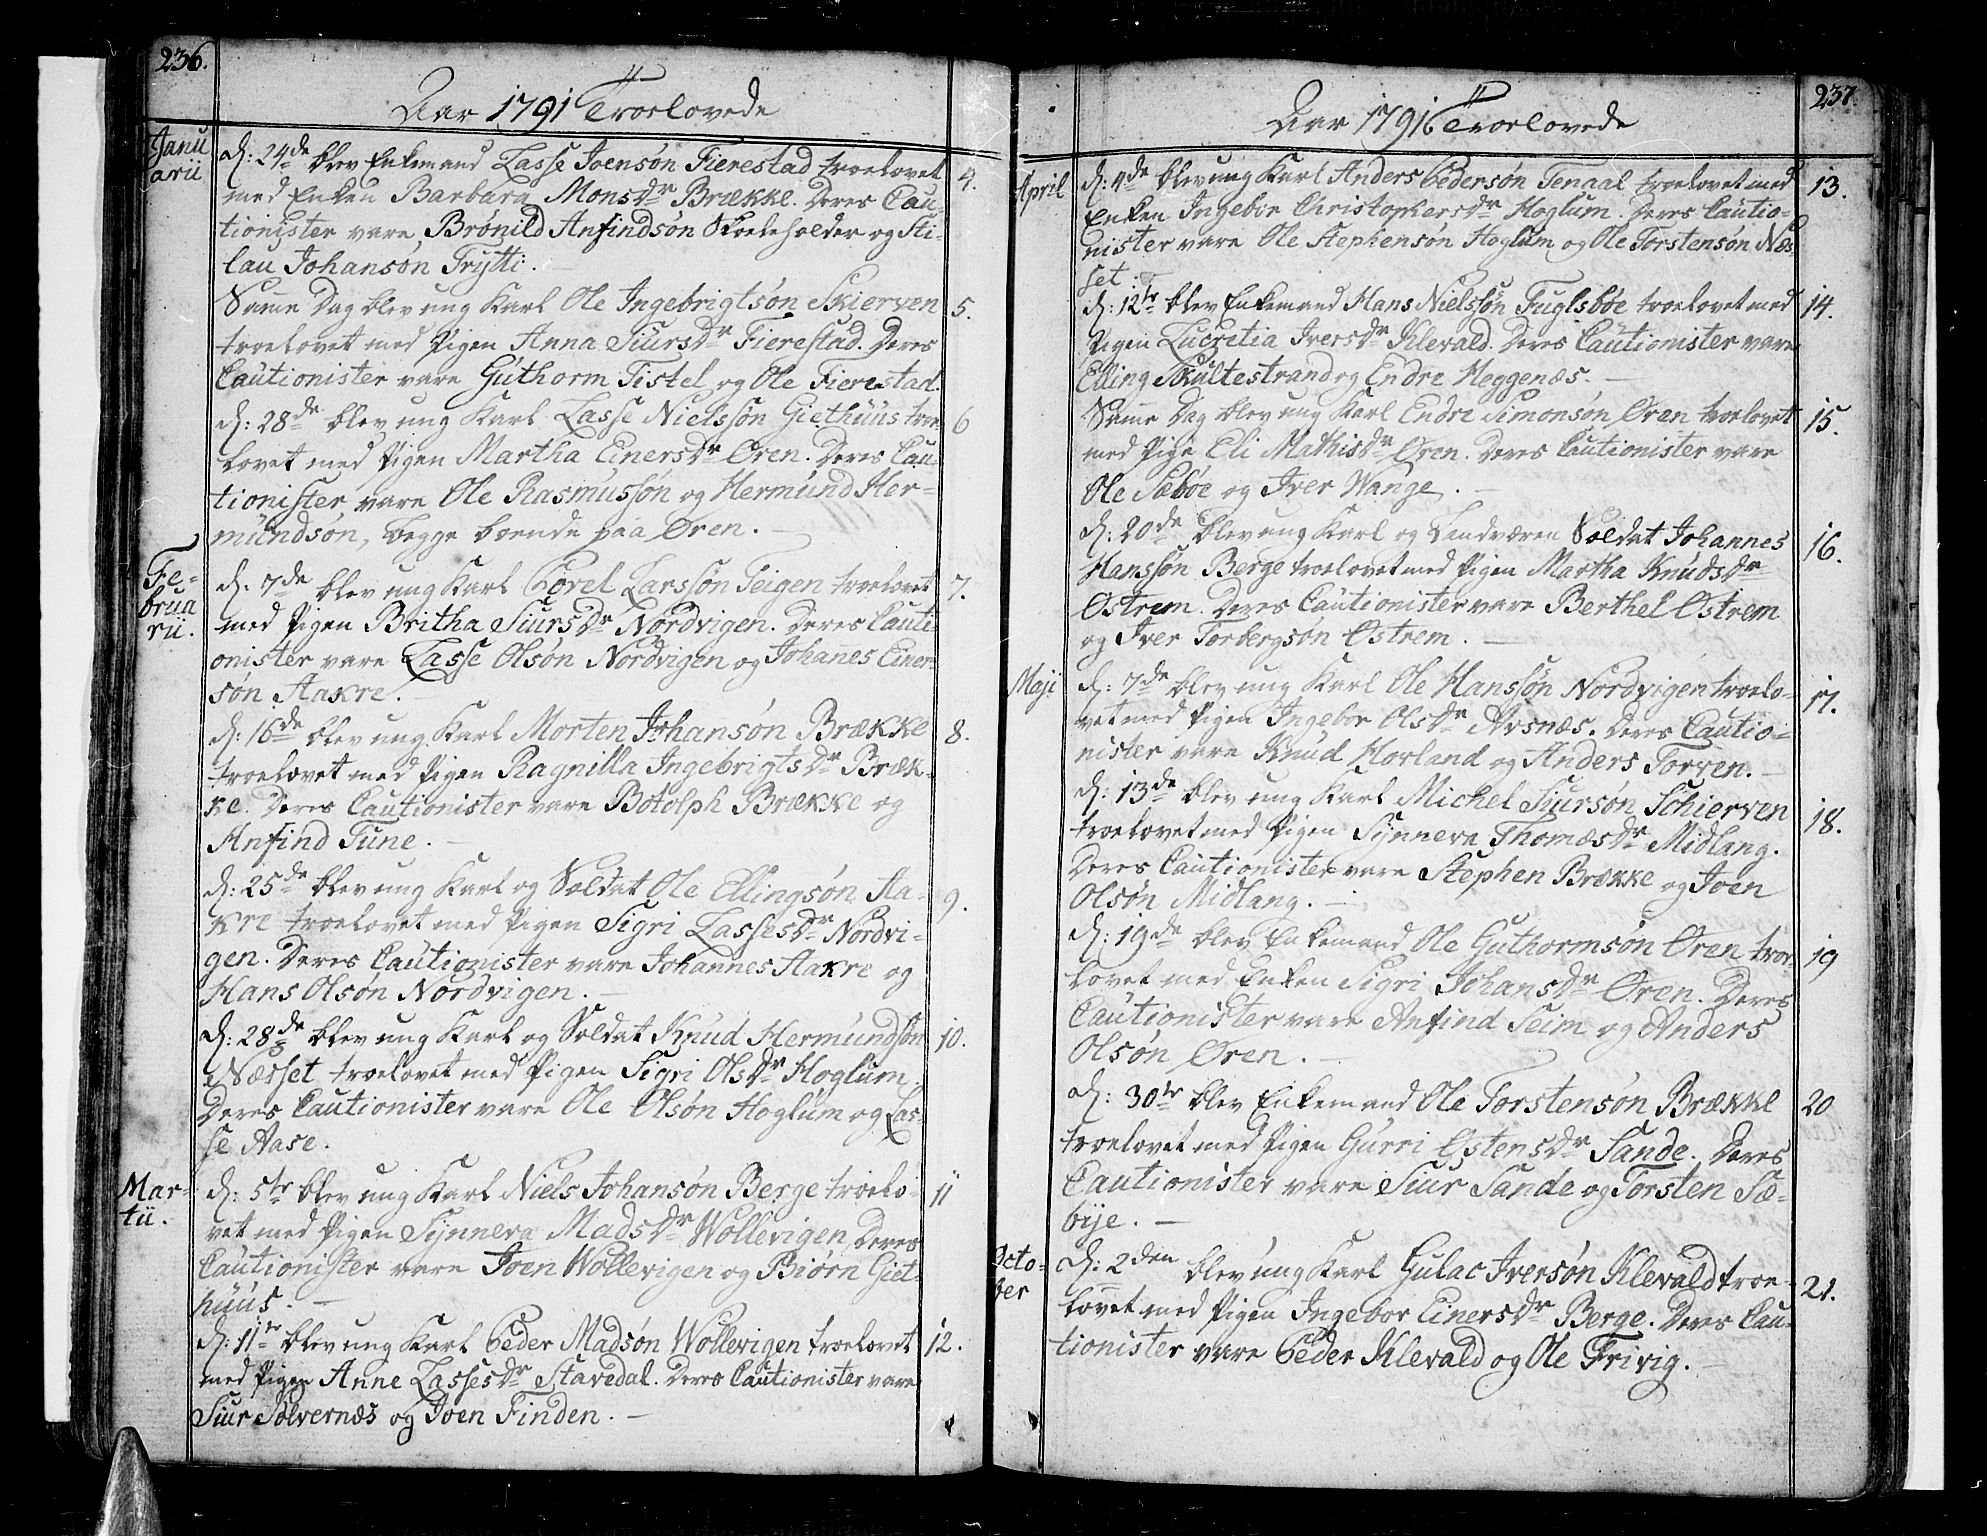 236.
Aar 1791 Troelovede
Janu
arii
d: 24de blev Enkemand Lasse Joensøn Fierestad troelovet 4.
med Enken Barbara Monsdr Brække. Deres Cau-
tionister vare, Brønild Anfindsøn Skoeleholder og Sti-
lau Johansøn Frytti.
Samme Dag blev ung Karl Ole Ingebrigtsøn Skierven 5.
troelovet med Pigen Anna Siursdr Fierestad. Deres
Cautionister vare Guthorm Tistel og Ole Fierestad.
d: 28de blev ung Karl Lasse Nielssøn Giethuus troe 6
lovet med Pigen Martha Einersdr Øren. Deres Cau-
tionister vare Ole Rasmussøn og Hermund Her-
mundsøn, begge boende paa Øren.
Fe-
brua
rii.
d: 7de blev ung Karl Povel Larssøn Teigen troelovet 7.
med Pigen Britha Siursdr Nordvigen. Deres Cauti
onister vare Lasse Olsøn Nordvigen og Johanes Einer-
søn Aakre.
d: 16de blev ung Karl Morten Johansøn Brække 8.
troelovet med Pigen Ragnilla Ingebrigtsdr Bræk-
ke. Deres Cautionister vare Botolph Brække og
Anfind Tune.
d: 25de blev ung Karl og Soldat Ole Ellingsøn Aa- 9.
kre troelovet med Pigen Sigri Lassesdr Nordvi-
gen. Deres Cautionister vare Johannes Aakre og
Hans Olsøn Nordvigen.
d: 28de blev ung Karl og Soldat Knud Hermundsøn 10.
Næsset troelovet med Pigen Sigri Olsdr Hoglum.
Deres Cautionister vare Ole Olsøn Hoglum og Las-
se Aase.
Mar-
tii.
d: 5te blev ung Karl Niels Johansøn Berge troelo- 11
vet med Pigen Synneva Madsdr Wollevigen Deres
Cautionister vare Joen Wollevigen og Biørn Giet-
huus.
d: 11te blev ung Karl Peder Madsøn Wollevigen troelovet 12.
med Pigen Anne Lassesdr Stavedal. Deres Cautionister vare
Siur Sølvernæs og Joen Finden.
237.
Aar 1791 Troelovede
April
d: 4de blev ung Karl Anders Pedersøn Tenaal troelovet med 13.
Enken Ingebor Christophersdr Hoglum. Deres Cautio-
nister vare Ole Stephensøn Hoglum og Ole Torstensøn Næs-
set.
d: 12te blev Enkemand Hans Nielssøn Fuglsbøe troelovet med 14.
Pigen Lucretia Iversdr Klevald. Deres Cautionister vare
Elling Skultestrand og Endre Heggenæs.
Samme Dag blev ung Karl Endre Simonsøn Øren troelovet 15.
med Pige Eli Mathisdr Øren. Deres Cautionister vare
Ole Sæbøe og Iver Wange.
d: 20de blev ung Karl og Landværen Soldat Johannes 16.
Hanssøn Berge troelovet med Pigen Martha Knudsdr
Ostrem. Deres Cautionister vare Berthel Ostrem
og Iver Torbergsøn Ostrem.
Maji
d: 7de blev ung Karl Ole Hanssøn Nordvigen troelo- 17.
vet med Pigen Ingebor Olsdr Avsnæs. Deres Cautio-
nister vare Knud Horland og Anders Torven.
d: 13de blev ung Karl Michel Siursøn Schierven 18.
troelovet med Pigen Synneva Thomæsdr Midlang.
Deres Cautionister vare Stephen Brække og Joen
Olsøn Midlang.
d: 19de blev Enkemand Ole Guthormsøn Øren troe- 19
lovet med Enken Sigri Johansdr Øren. Deres
Cautionister vare Anfind Seim og Anders
Olsøn Øren.
d: 30te blev Enkemand Ole Torstensøn Brække 20
troelovet med Pigen Gurri Ostensdr Sande. Deres
Cautionister vare Siur Sande og Torsten Sæ-
bye.
Octo-
ber
d: 2den blev ung Karl Gulac Iversøn Klevald troe- 21.
lovet med Pigen Ingebor Einersdr Berge. Deres Cau-
tionister vare Peder Klevald og Ole Frivig.